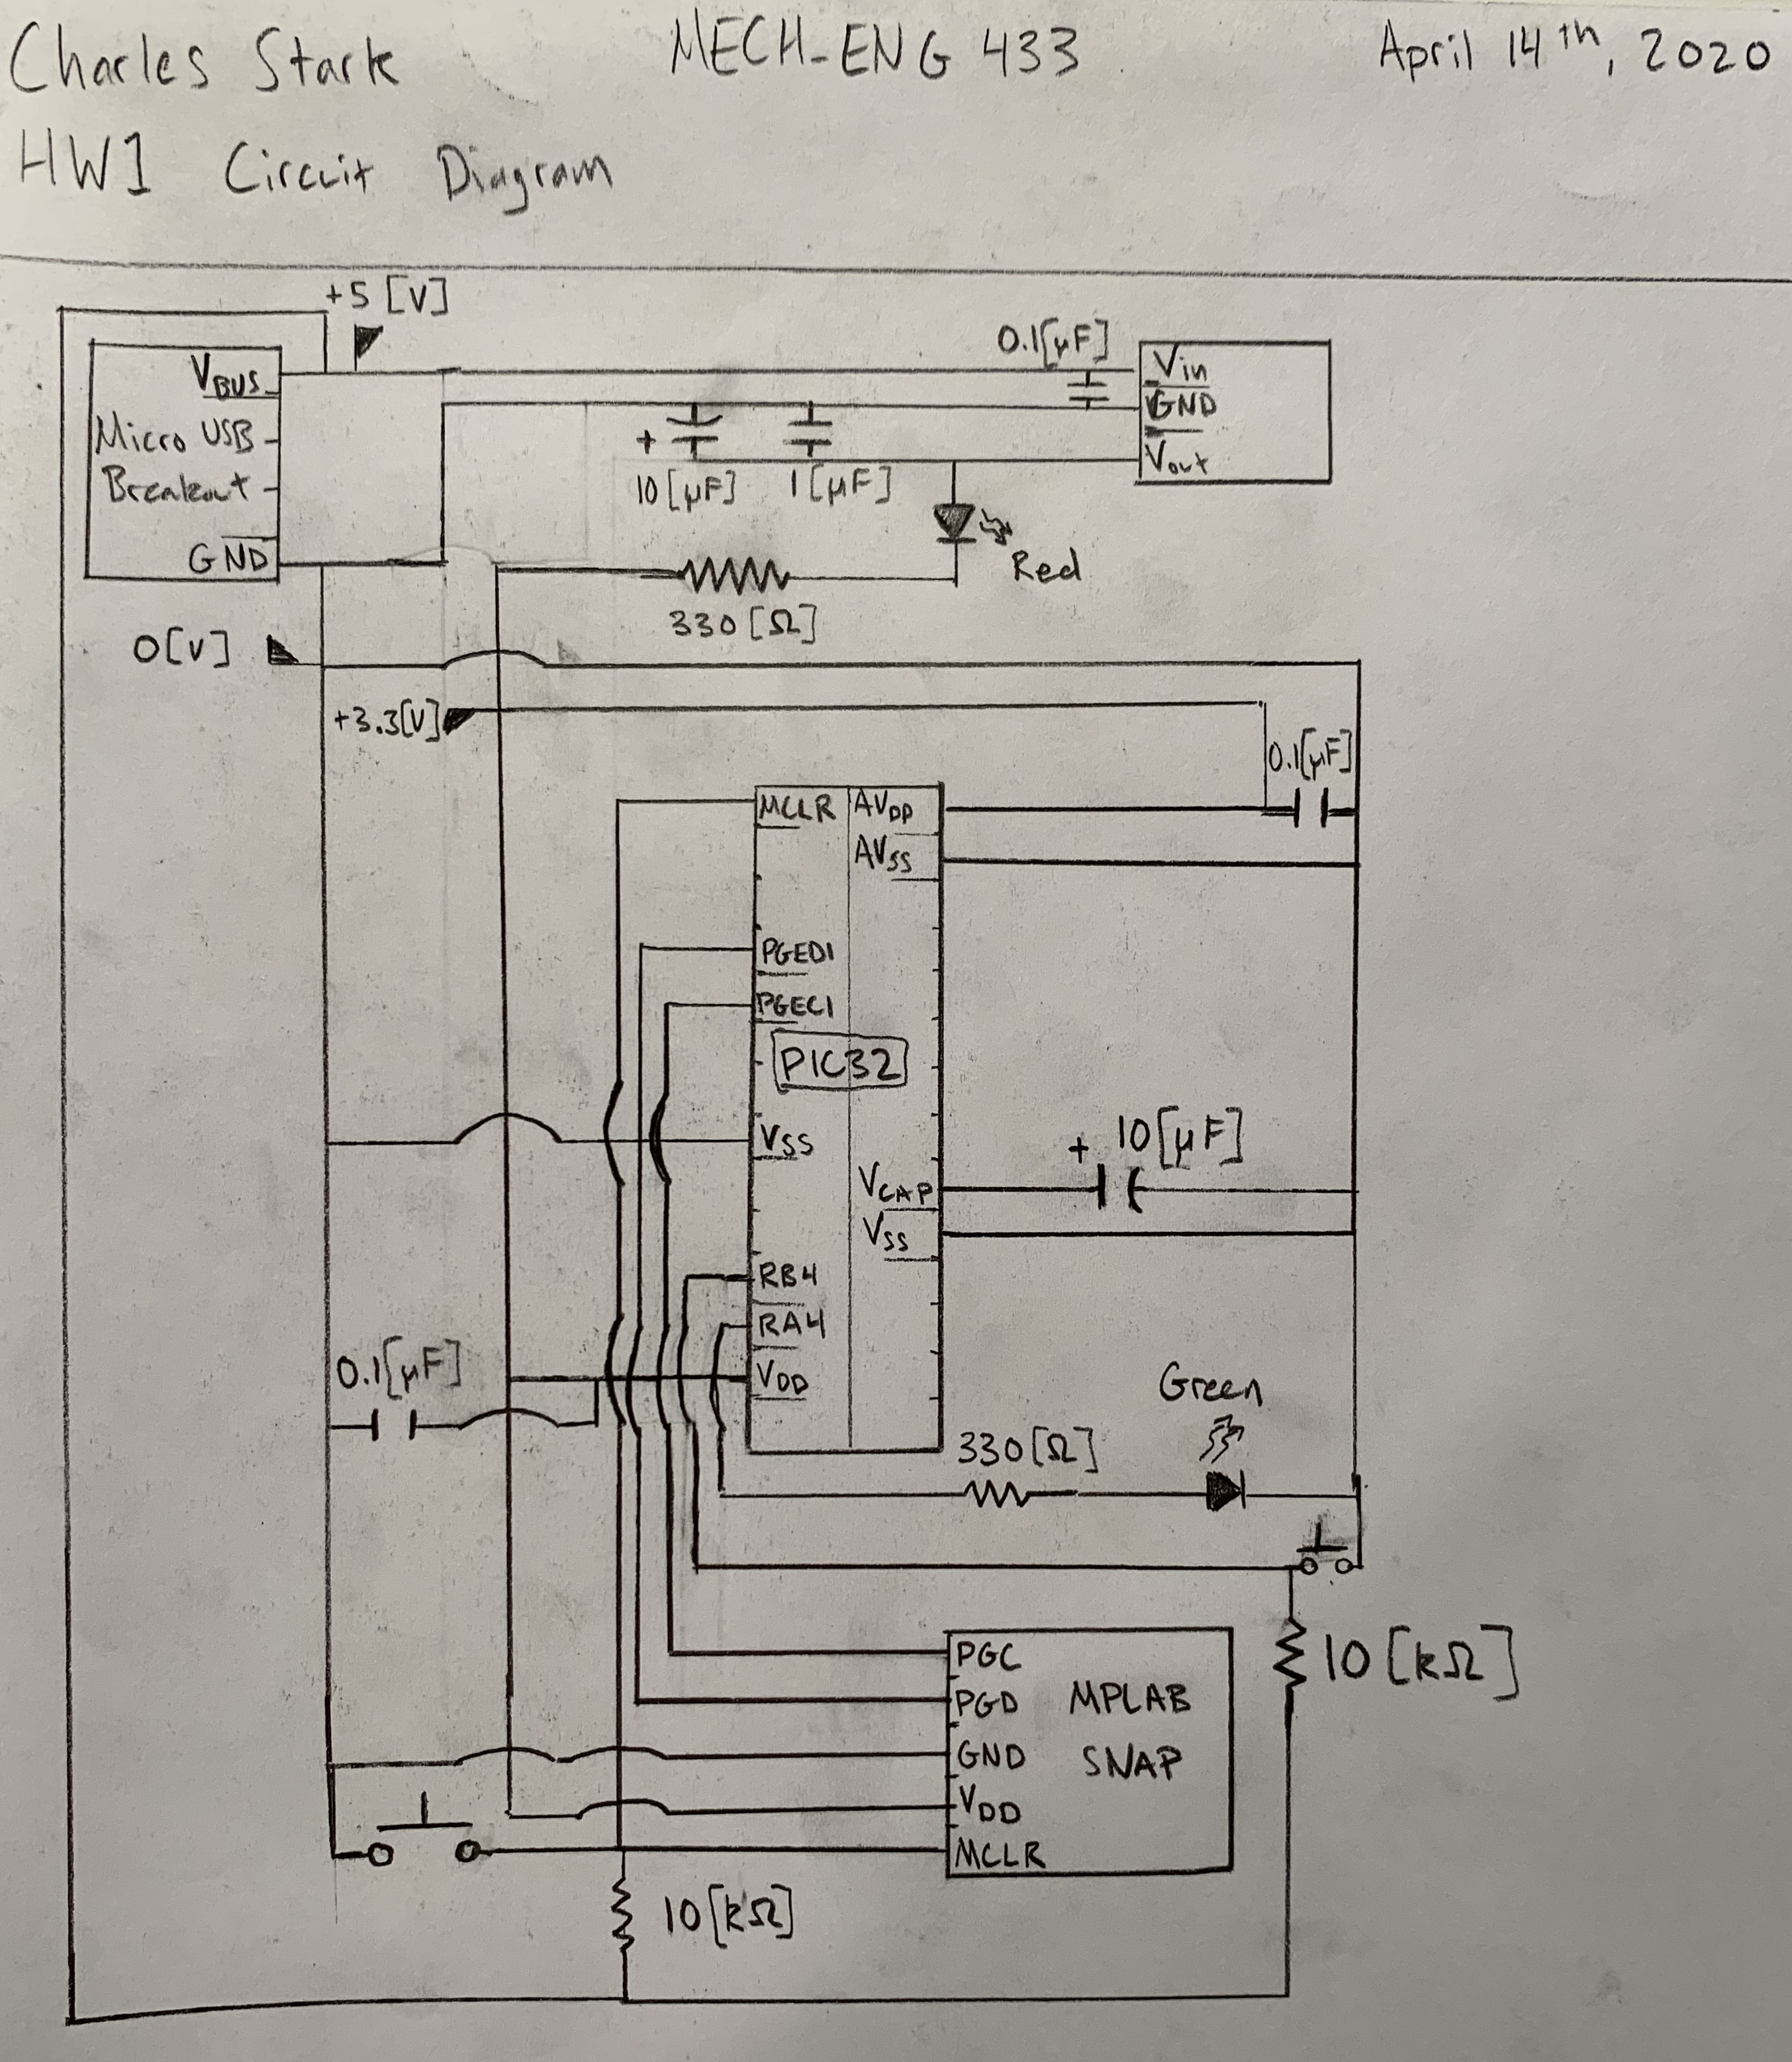 Charles Stark MECH-ENG 433 April 14th, 2020
HW1 Circuit Diagram
+5 [V]
0.1[μF]
VBUS
Micro USB
Breakout
GND
Vin
GND
Vout
+
10 [μF]
1 [μF]
Red
330 [Ω]
0[V]
+3.3[V]
0.1[μF]
MCLR
AVDD
AVSS
PGED1
PGEC1
PIC32
VSS
+ 10[μF]
VCAP
VSS
RB4
RA4
VDD
0.1[μF]
Green
330[Ω]
10 [kΩ]
PGC
PGD
GND
VDD
MCLR
MPLAB
SNAP
10[kΩ]